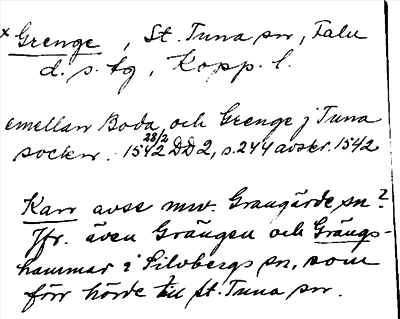 × Grenge, St. Tuna sn, Falu
d. s. tg, Kopp. l.
emellan Boda och Grenge j Tuna
sockn. 1542 28/2 DD2, s. 244 avskr. 1542
Kan avse mv. Grangärde sn?
Jfr. även Grängen och Grängs-
hammar i Silvbergs sn, som
förr hörde till St. Tuna sn.